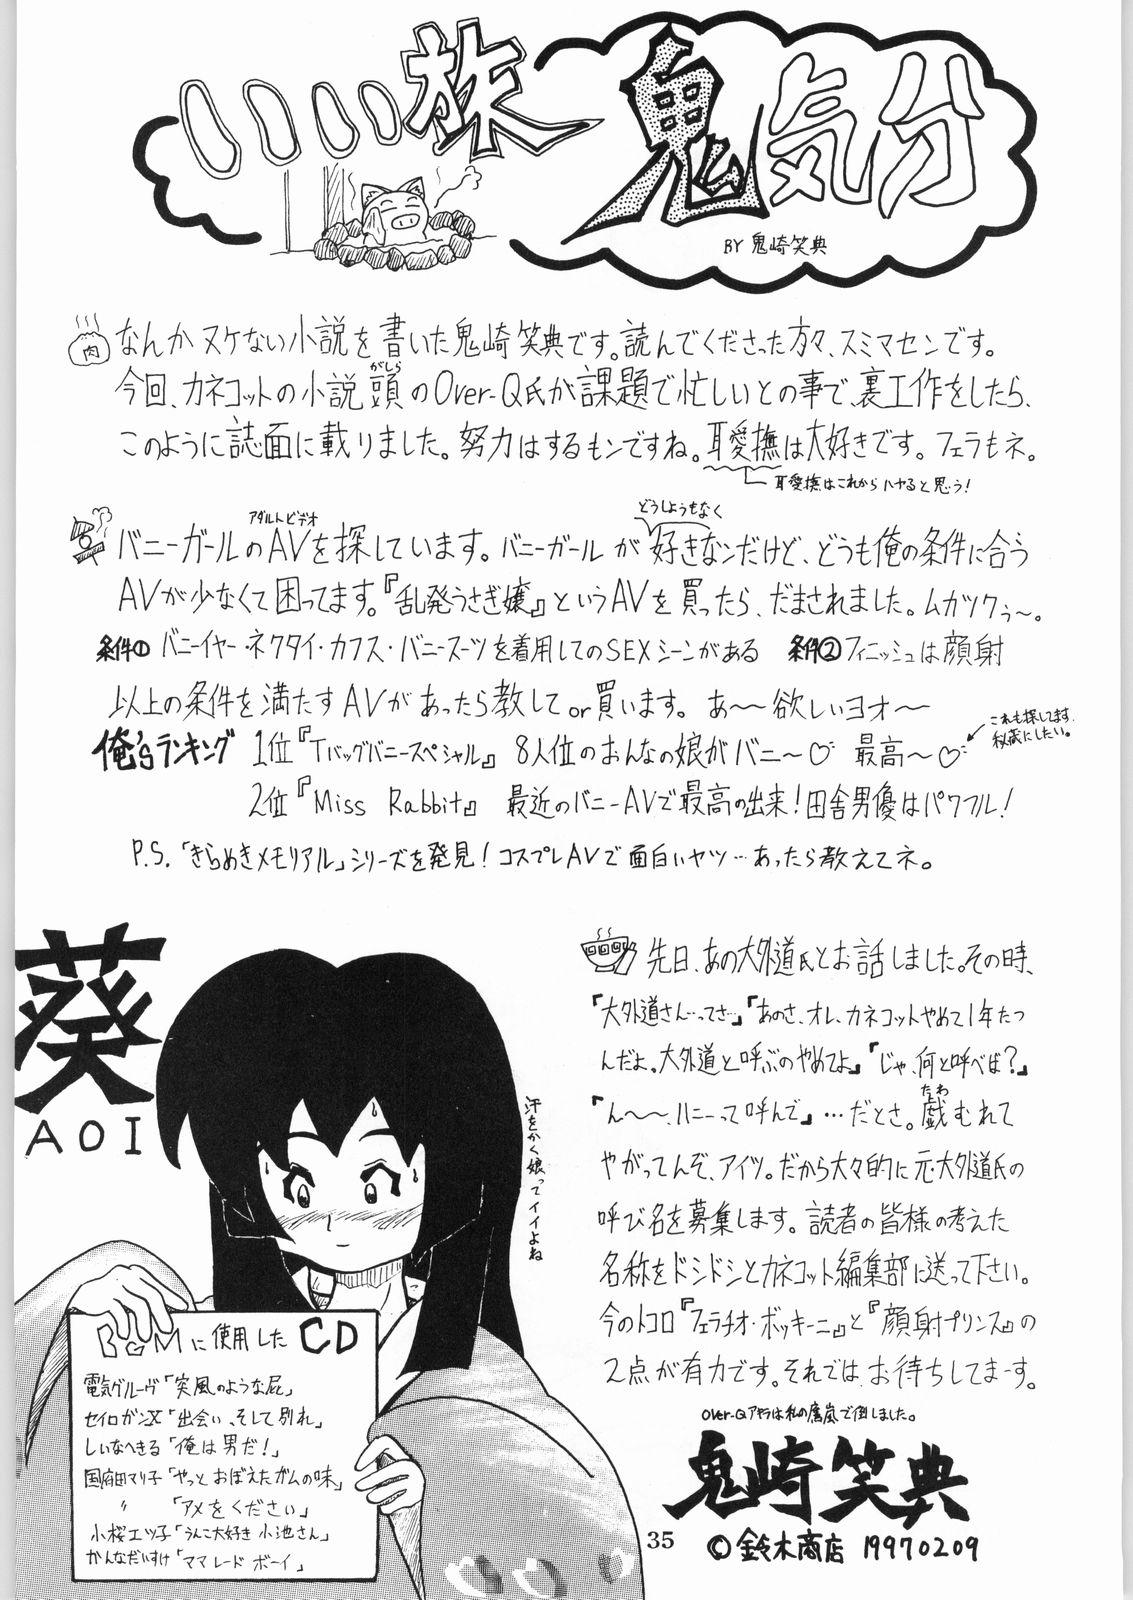 いい旅鬼気分
BY 鬼崎笑典
肉
なんかヌケない小説を書いた鬼崎笑典です。読んでくださった方々、スミマセンです。
今回、カネコットの小説頭のOver-Q氏が課題で忙しいとの事で、裏工作をしたら、
がしら
このように誌面に載りました。努力はするモンですね。耳愛撫は大好きです。フェラもネ。
耳愛撫はこれからハヤると思う!
アダルトビデオ
どうしようもなく
バニーガールのAVを探しています。バニーガールが好きなンだけど、どうも俺の条件に合う
AVが少なくて困ってます。『乱発うさぎ嬢』というAVを買ったら、だまされました。ムカツクぅ〜。
条件① バニーイヤー・ネクタイ・カフス・バニースーツを着用してのSEXシーンがある 条件② フィニッシュは顔射
以上の条件を満たすAVがあったら教して or 買います。あ〜〜欲しいヨオ〜
これも探してます。
秘蔵にしたい。
俺'sランキング 1位『Tバックバニースペシャル』 8人位のおんなの娘がバニ〜♡ 最高〜♡
2位『Miss Rabbit』 最近のバニーAVで最高の出来!田舎男優はパワフル!
P.S.「きらめきメモリアル」シリーズを発見!コスプレAVで面白いヤツ…あったら教えてネ。
葵
AOI
汗をかく娘ってイイよね
先日、あの大外道氏とお話しました。その時、
『大外道さん…ってさ…』『あのさ、オレ、カネコットやめて1年たつ
んだよ。大外道と呼ぶのやめてよ』『じゃ、何と呼べば?』
『ん〜〜、ハニーって呼んで』…だとさ。戯むれて
たわ
やがってんぞ、アイツ。だから大々的に元・大外道氏の
呼び名を募集します。読者の皆様の考えた
名称をドシドシとカネコット編集部に送って下さい。
今のトコロ『フェラチオ・ボッキーニ』と『顔射プリンス』の
2点が有力です。それでは、お待ちしてまーす。
Over-Qアキラは私の陰嵐で倒しました。
鬼崎笑典
©鈴木商店 19970209
BGMに使用したCD
電気グルーヴ「突風のような屁」
セイロガンX「出会い、そして別れ」
しいなへきる「俺は男だ!」
国府田マリ子「やっとおぼえたガムの味」
〃 「アメをください」
小桜エツ子「うんこ大好き小池さん」
かんなだいすけ「ママレードボーイ」
35